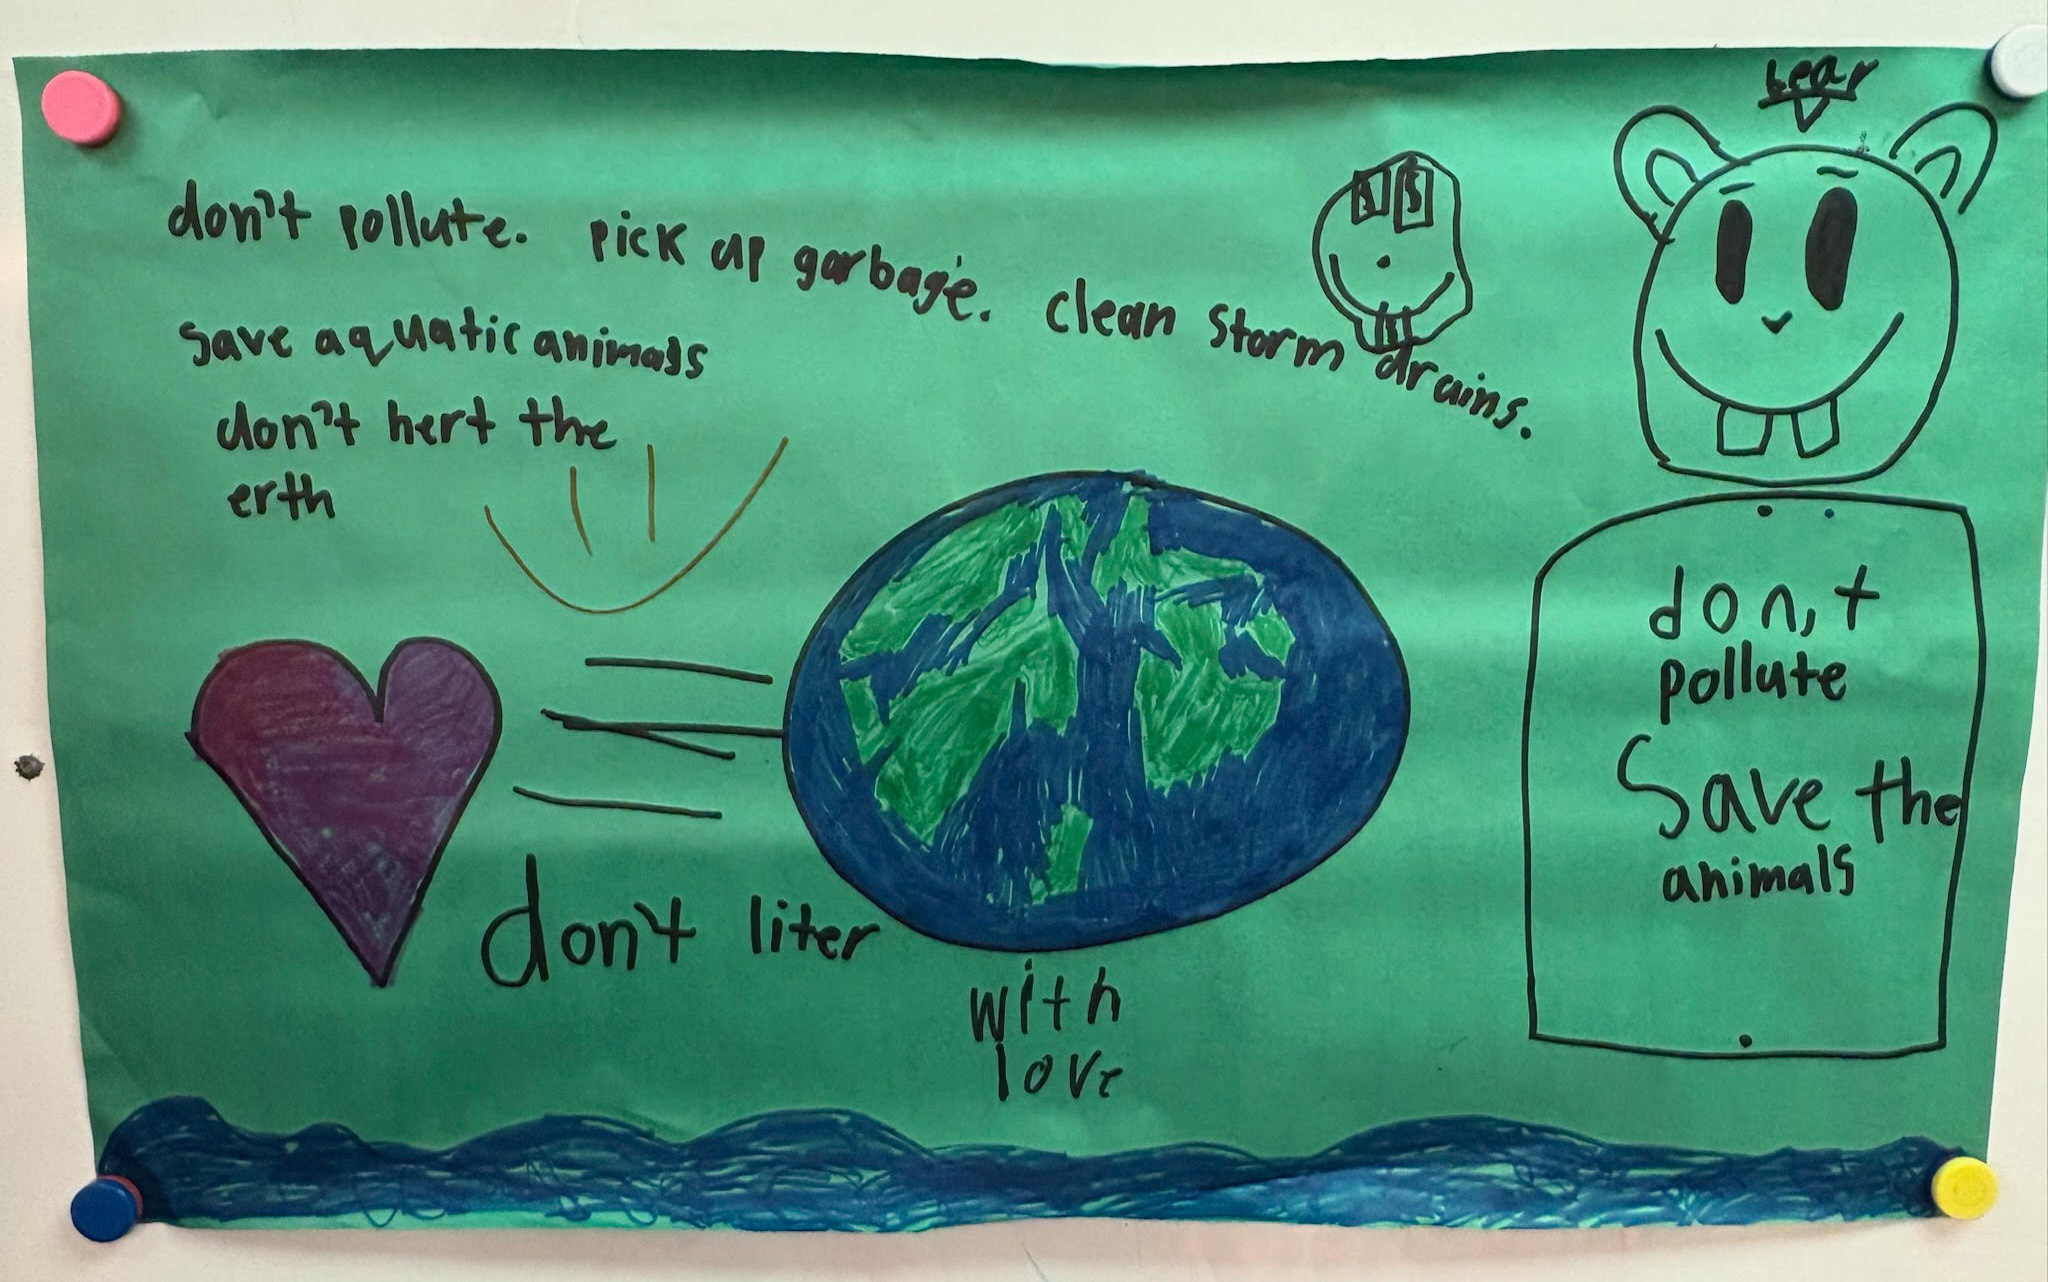 bear
don't pollute. pick up garbage. clean storm drains.
save aquatic animals
don't hert the
erth
don,t
pollute
Save the
animals
don't liter
with
love